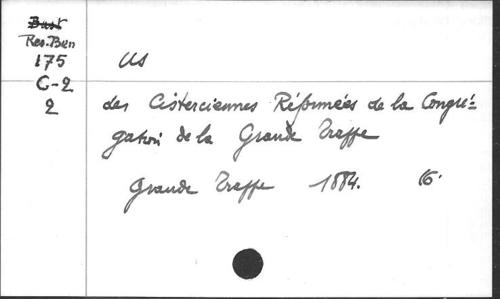 Bust
Res. Ben
175
C-2
2
Us
des Cisterciennes Réformées de la Congré-
gation de la Grande Trappe
Grande Trappe 1884. 16°